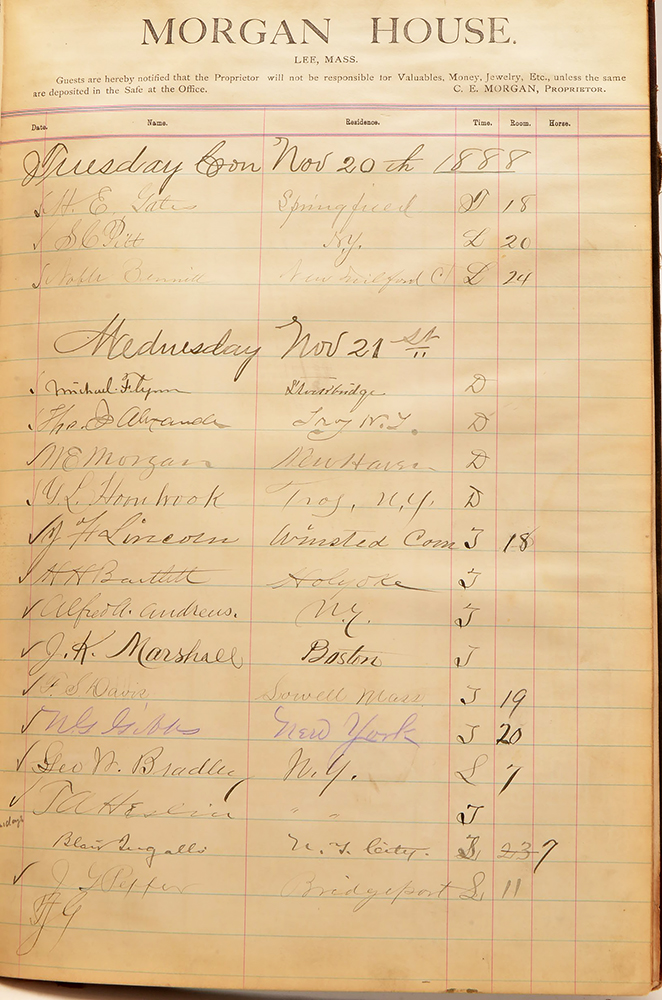 MORGAN HOUSE.
LEE, MASS.
Guests are hereby notified that the Proprietor will not be responsible for Valuables, Money, Jewelry, Etc., unless the same
are deposited in the Safe at the Office. C. E. MORGAN, PROPRIETOR.
Date. Name. Residence. Time. Room. Horse.
Tuesday Nov 20th 1888
H. E. Gates Springfield 18
S C Pitt N.Y. L 20
Noble Bennett New Milford Ct L 24
Wednesday Nov 21st
Michael Flynn Stockbridge D
Troy N.Y. D
M E Morgan New Haven D
Y L Hornbrook Troy, N.Y. D
J F Lincoln Winsted Conn T 18
H H Bartlett Holyoke T
Alfred A. Andrews. N.Y. T
J. K. Marshall Boston T
F. S Davis Lowell Mass T 19
W G Gibbs New York T 20
Geo W. Bradley N.Y. L 7
T A Heslin " " T
Blair Ingalls N. Y. City. 23 7
J Y Pepper Bridgeport L 11